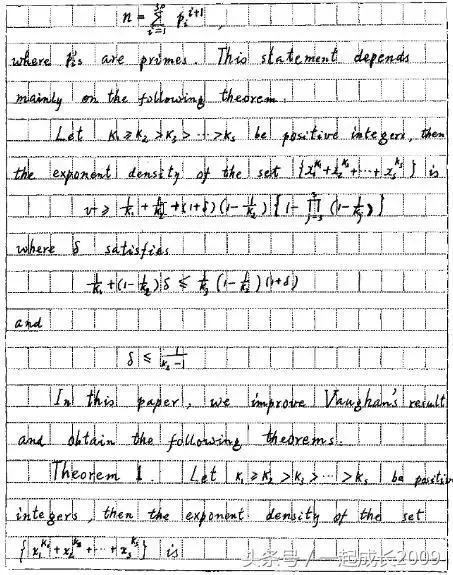 n = Σ_{i=1}^{30} p_i^{i+1},
where p_i's are primes. This statement depends
mainly on the following theorem.
Let k₁ ⩾ k₂ > k₃ > ⋯ > kₛ be positive integers, then
the exponent density of the set {x₁^{k₁} + x₂^{k₂} + ⋯ + xₛ^{kₛ}} is
ν ⩾ 1/k₁ + 1/k₂ + (1+δ)(1 − 1/k₂){1 − ∏_{j=3}^{s}(1 − 1/k_j)}
where δ satisfies
1/k₁ + (1 − 1/k₂)δ ⩽ 1/k₃ (1 − 1/k₂)(1+δ)
and
In this paper, we improve Vaughan's result
and obtain the following theorems.
Theorem 1. Let k₁ ⩾ k₂ > k₃ > ⋯ > kₛ be positiv
integers, then the exponent density of the set
{x₁^{k₁} + x₂^{k₂} + ⋯ + xₛ^{kₛ}} is
头条号/一起成长2009